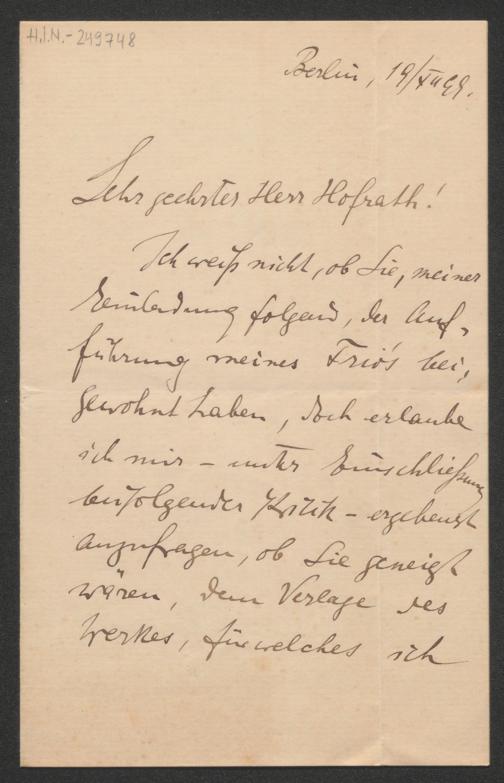 H.I.N.-249748
Berlin, 19/XII 99.
Sehr geehrter Herr Hofrath!
Ich weiß nicht, ob Sie, meiner
Einladung folgend, der Auf-
führung meines Trio's bei-
gewohnt haben, doch erlaube
ich mir – unter Einschließung
beifolgender Kritik – ergebenst
anzufragen, ob Sie geneigt
wären, dem Verlage des
Werkes, für welches ich